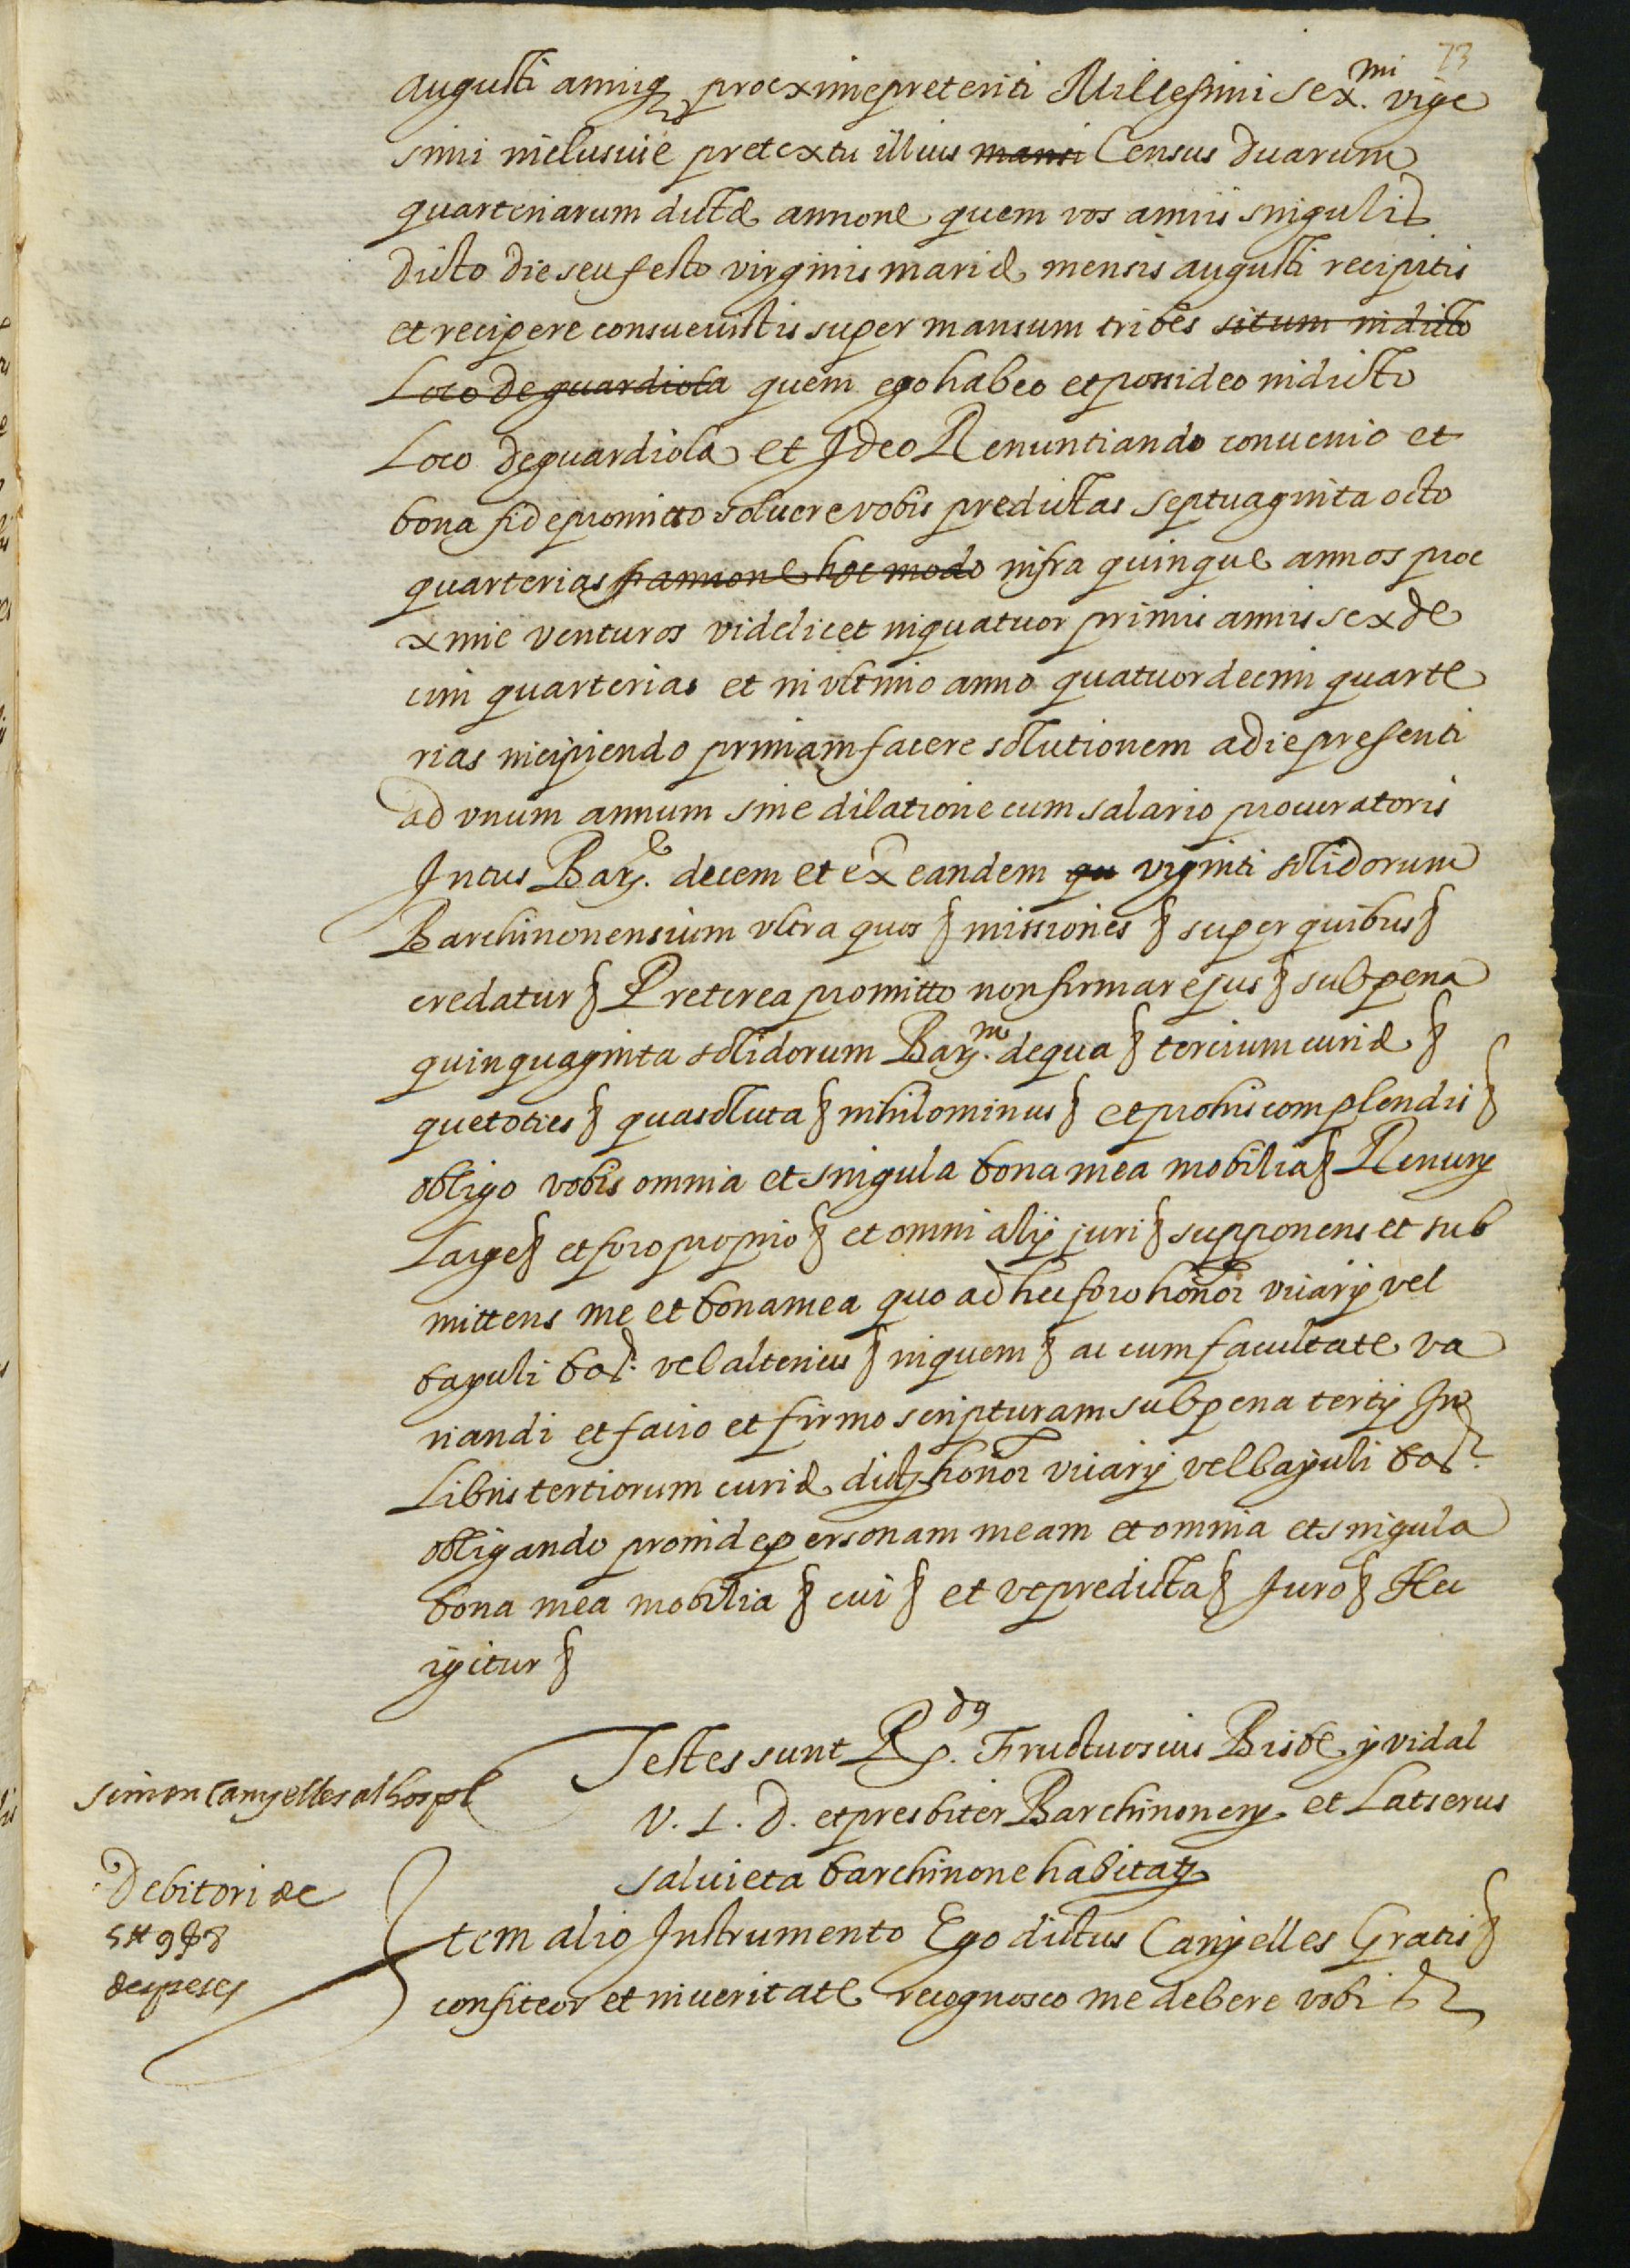 73
augusti anniq proximepreteriti Millesimi sex.mi vige
simi inclusiue pretextu illius mansi Census duarum
quarteriarum dictæ annonæ quem vos annis singulis
dicto die seu festo virginis mariæ mensis augusti recipitis
et recipere consueuistis super mansum tribes situm in dicto
Loco de guardiola quem ego habeo et possideo in dicto
Loco de guardiola et Ideo Renuntiando conuenio et
bona fide promitto soluere vobis predictas septuaginta octo
quarterias annone hoc modo infra quinque annos proe
xime venturos videlicet in quatuor primis annis sexde
cim quarterias et in vltimo anno quatuordecim quarte
rias incipiendo primam facere solutionem a die presenti
ad vnum annum sine dilatione cum salario procuratoris
Intus Barz.e decem et ex eandem qu viginti solidorum
Barchinonensium vltra quos § missiones § super quibus §
credatur § Preterea promitto non firmare jus § sub pena
quinquaginta solidorum Barz.m de qua § tercium curiæ §
que toties § qua soluta § nihilominus § et pro his complendis §
obligo vobis omnia et singula bona mea mobilia § Renunz
Large § et foro proprio § et omni alij juri § supponens et sub
mittens me et bona mea quo ad hec foro honor vicarij vel
bajuli bar. vel alterius § in quem § ac cum facultate va
riandi et facio et firmo scripturam sub pena tertij In
Libris tertiorum curiæ dictz honor vicarij vel bajuli bar.
obligando proinde personam meam et omnia et singula
bona mea mobilia § cui § et vt predicta § Juro § Hec
igitur §
Testes sunt R.dus Fructuosius Bisbe y vidal
V. I. D. et presbiter Barchinonenz. et Latserus
saluieta barchinone habitatz
simon Canyelles al hospl
Debitori de
5 ₶ 9 ß 8
despeses
Item alio Instrumento Ego dictus Canyelles Gratis §
confiteor et in ueritate recognosco me debere vobis